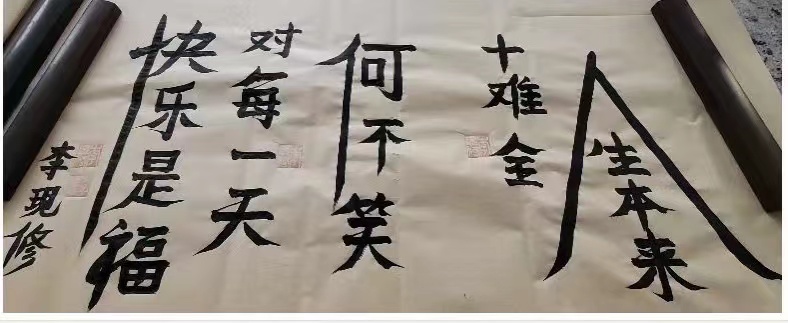 人生本来
十难全
何不笑
对每一天
快乐是福
李现修